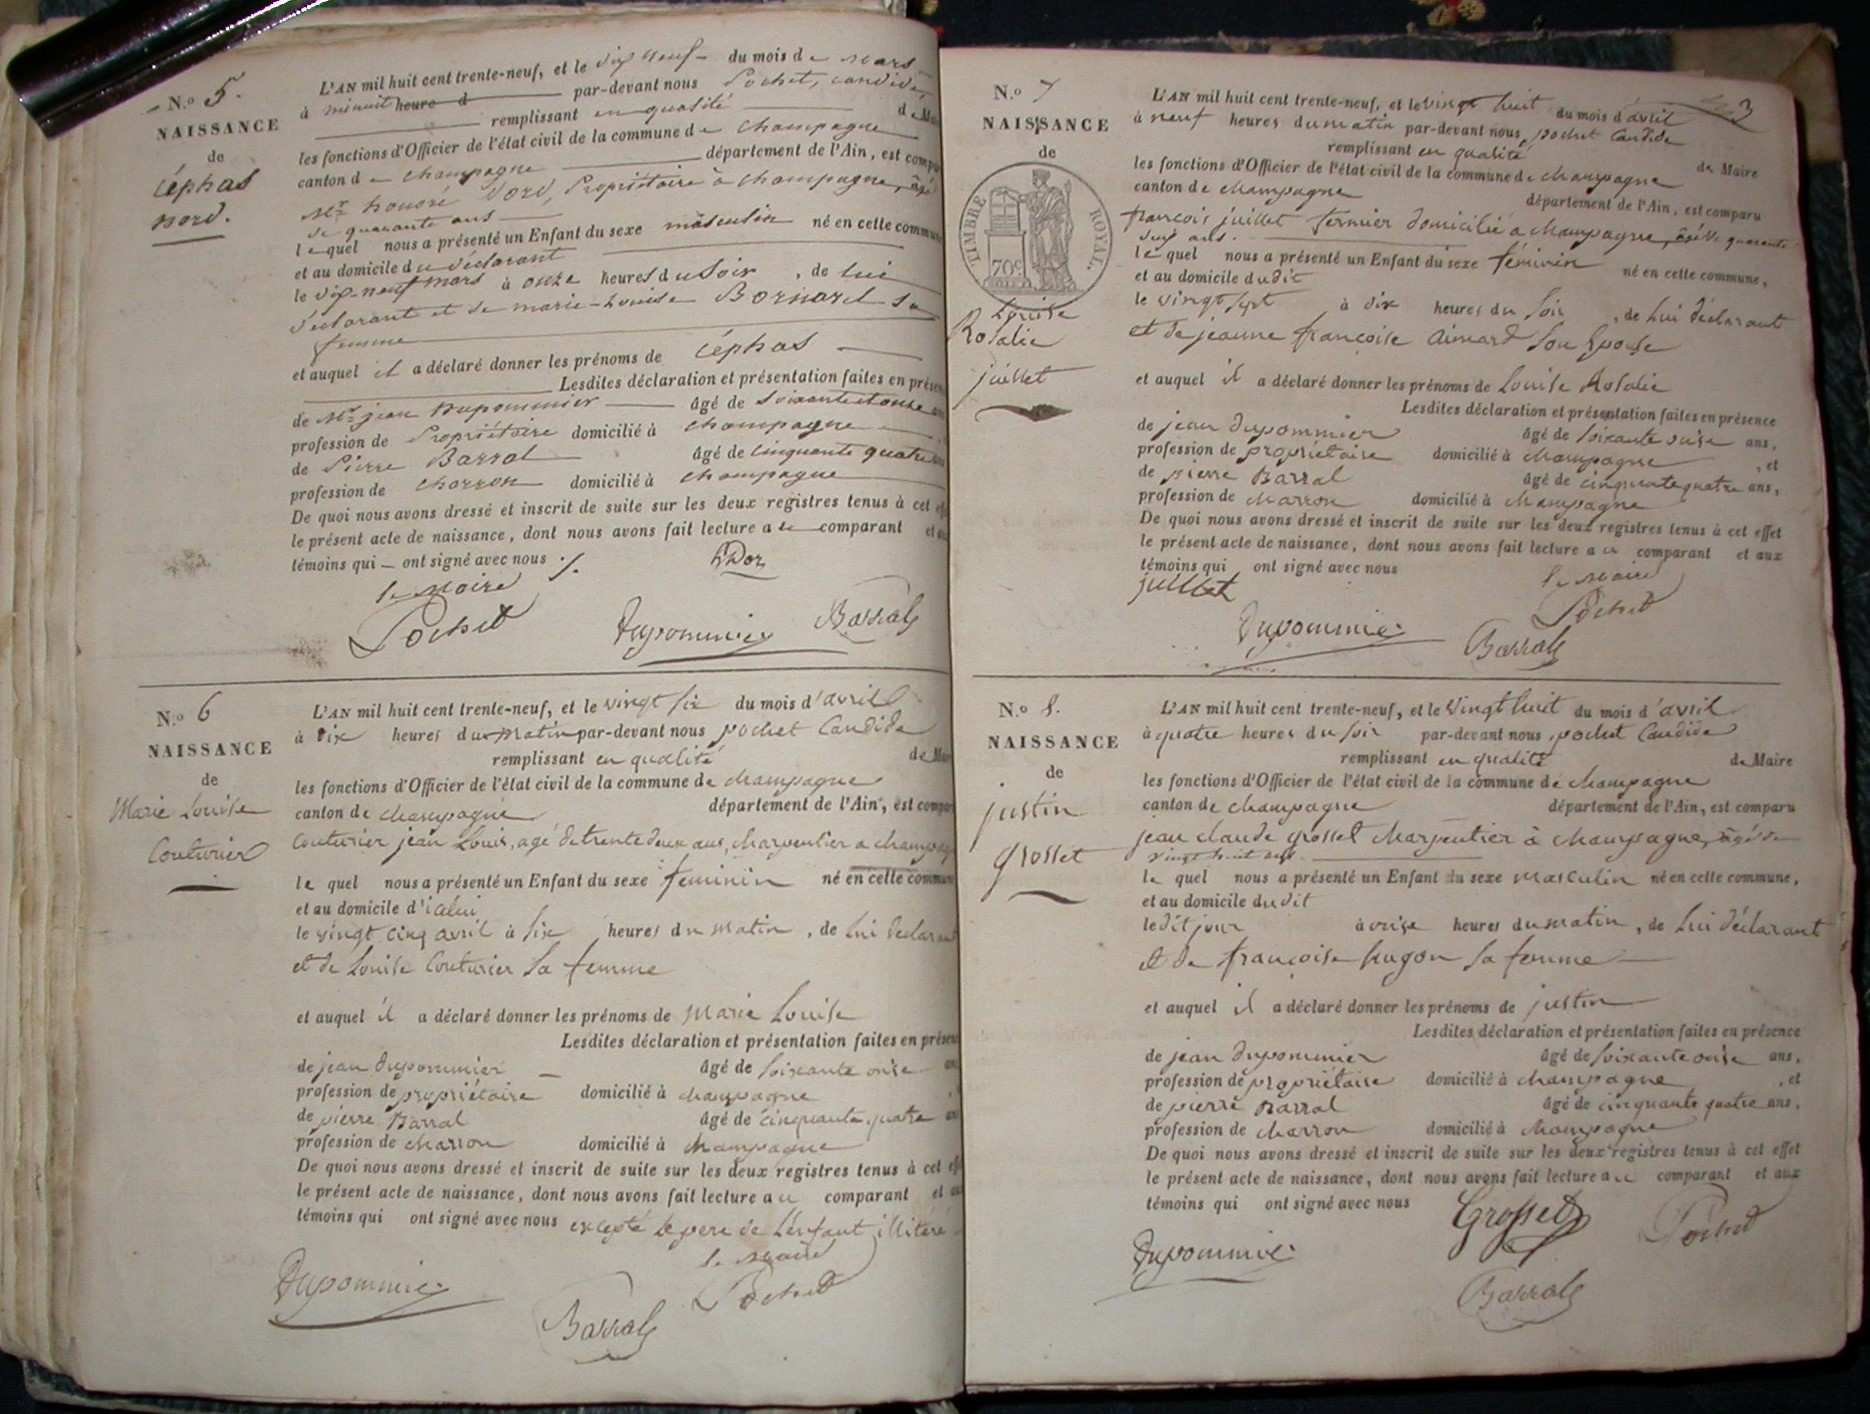 N.o 5.
NAISSANCE
de
Céphas
nord.
L'AN mil huit cent trente-neuf, et le dix neuf du mois de mars
à minuit heure d par-devant nous Pochet, candide,
remplissant en qualité de Mai
les fonctions d'Officier de l'état civil de la commune de Champagne
canton de Champagne département de l'Ain, est compa
Mr honoré Dord, Propriétaire à Champagne, âgé
de quarante ans
le quel nous a présenté un Enfant du sexe masculin né en cette commun
et au domicile du déclarant
le dix-neuf mars à onze heures du Soir, de lui
déclarant et de marie-Louise Bornard sa
femme
et auquel il a déclaré donner les prénoms de Céphas
Lesdites déclaration et présentation faites en présen
de Mr jean Dupommier âgé de soixante et onze
profession de Propriétaire domicilié à Champagne
de Pierre Barral âgé de cinquante quatre
profession de Charron domicilié à Champagne
De quoi nous avons dressé et inscrit de suite sur les deux registres tenus à cet eff
le présent acte de naissance, dont nous avons fait lecture a le comparant et au
témoins qui ont signé avec nous ./.
le Maire
Pochet Dupommier Barral
N.o 6
NAISSANCE
de
Marie Louise
Couturier
L'AN mil huit cent trente-neuf, et le vingt six du mois d'avril
à dix heures du matin par-devant nous pochet Candide
remplissant en qualité de Mai
les fonctions d'Officier de l'état civil de la commune de champagne
canton de champagne département de l'Ain, est compar
Couturier jean Louis, agé de trente deux ans, charpentier a champag
le quel nous a présenté un Enfant du sexe feminin né en cette commune
et au domicile d'icelui
le vingt cinq avril à six heures du matin, de lui declarant
et de Louise Couturier sa femme
et auquel il a déclaré donner les prénoms de Marie Louise
Lesdites déclaration et présentation faites en présen
de jean dupommier âgé de soixante onse an
profession de propriétaire domicilié à champagne
de pierre Barral âgé de cinquante quatre an
profession de charron domicilié à champagne
De quoi nous avons dressé et inscrit de suite sur les deux registres tenus à cet eff
le présent acte de naissance, dont nous avons fait lecture a ce comparant et au
témoins qui ont signé avec nous excepté le pere de l'enfant illitéré
le maire
Dupommier Barral Pochet
3
N.o 7
NAISSANCE
de
TIMBRE ROYAL.
70c
Louise
Rosalie
juillet
L'AN mil huit cent trente-neuf, et le vingt huit du mois d'avril
à neuf heures du matin par-devant nous pochet Candide
remplissant en qualité de Maire
les fonctions d'Officier de l'état civil de la commune de champagne
canton de champagne département de l'Ain, est comparu
françois juillet fermier domicilié a champagne, âgé de quarante
six ans.
le quel nous a présenté un Enfant du sexe féminin né en cette commune,
et au domicile dudit
le vingt sept à dix heures du soir, de lui déclarant
et de jeanne françoise aimard son epouse
et auquel il a déclaré donner les prénoms de Louise Rosalie
Lesdites déclaration et présentation faites en présence
de jean dupommier âgé de soixante onse ans,
profession de propriétaire domicilié à champagne, et
de pierre Barral âgé de cinquante quatre ans,
profession de charron domicilié à champagne
De quoi nous avons dressé et inscrit de suite sur les deux registres tenus à cet effet
le présent acte de naissance, dont nous avons fait lecture a ce comparant et aux
témoins qui ont signé avec nous
juillet le maire
Dupommier Barral Pochet
N.o 8.
NAISSANCE
de
justin
grosset
L'AN mil huit cent trente-neuf, et le vingt huit du mois d'avril
à quatre heures du soir par-devant nous pochet Candide
remplissant en qualité de Maire
les fonctions d'Officier de l'état civil de la commune de champagne
canton de champagne département de l'Ain, est comparu
jean claude grosset charpentier à champagne, âgé de
vingt huit ans.
le quel nous a présenté un Enfant du sexe masculin né en cette commune,
et au domicile dudit
le dit jour à onse heures du matin, de lui déclarant
et de françoise hugon sa femme
et auquel il a déclaré donner les prénoms de justin
Lesdites déclaration et présentation faites en présence
de jean dupommier âgé de soixante onse ans,
profession de propriétaire domicilié à champagne, et
de pierre Barral âgé de cinquante quatre ans,
profession de charron domicilié à champagne
De quoi nous avons dressé et inscrit de suite sur les deux registres tenus à cet effet
le présent acte de naissance, dont nous avons fait lecture a ce comparant et aux
témoins qui ont signé avec nous
Dupommier Grosset Pochet
Barral